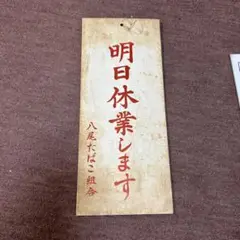 明日休業します
八尾たばこ組合